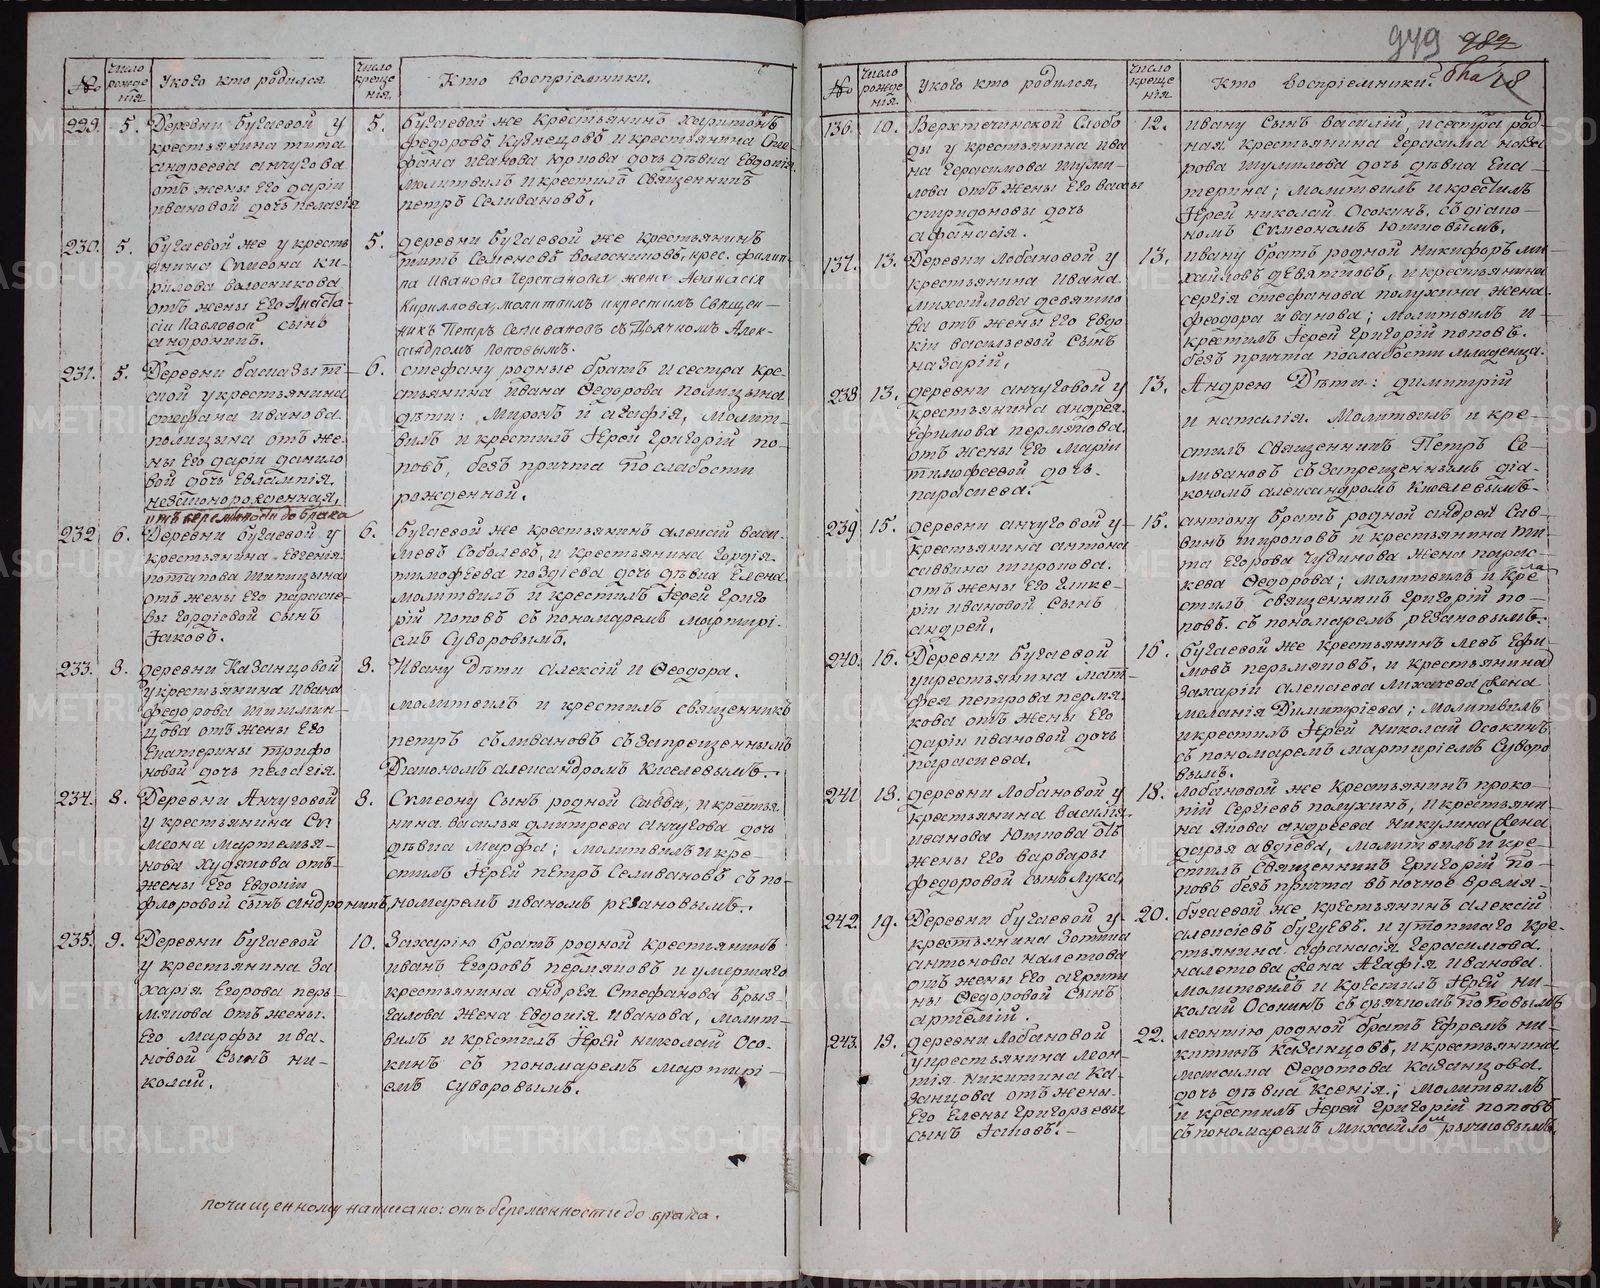 949 982
№
Число рожде нія
У кого кто родился
Число креще нія
Кто воспріемники.
229. 5. Деревни бугаевой у
крестьянина тита
андреева анчугова
отъ жены его даріи
ивановой дочь пелагія
5. бугаевой же крестьянинъ харитонъ
федоровъ кузнецовъ и крестьянина сте
фана иванова юрпова дочь дѣвица Евдокія
молитвилъ и крестилъ Священникъ
петръ Селивановъ.
230. 5. бугаевой же у кресть
янина Симеона ки-
рилова волосникова
отъ жены его Анаста-
сіи Павловой сынъ
андроникъ.
5. деревни бугаевой же крестьянинъ
титъ Семеновъ волосниковъ, крес. филип-
па Иванова Черепанова жена Афанасія
Кириллова, молитвилъ и крестилъ Священ-
никъ Петръ Селивановъ съ Дьячкомъ Алек-
сандромъ поповымъ.
231. 5. Деревни
ской у крестьянина
стефана иванова
полицына отъ же-
ны его даріи данило
вой дочь Евлампія.
незаконорожденная,
отъ беременности до брака
6. стефану родные братъ и сестра кре-
стьянина ивана Федорова полицына
дѣти: Миронъ и агафія, молит-
вилъ и крестилъ Іерей Григорій по-
повъ, безъ причта по слабости
рожденной.
232 6. Деревни бугаевой у
крестьянина Евгенія
потапова шипицына
отъ жены его параске-
вы гордіевой сынъ
Іаковъ.
6. бугаевой же крестьянинъ алексій васи-
льевъ Соболевъ, и крестьянина Гордія
тимофеева поздіева дочь дѣвица Елена
молитвилъ и крестилъ Іерей Григо
рій поповъ съ пономаремъ мартирі-
емъ Суворовымъ.
233. 8. деревни Казанцовой
у крестьянина ивана
федорова
цова отъ жены его
Екатерины трифо
новой дочь пелагія.
8. Ивану дѣти Алексій и Феодора.
молитвилъ и крестилъ священникъ
петръ съливановъ съ запрещеннымъ
Діакономъ александромъ Киселевымъ.
234. 8. Деревни Анчуговой
у крестьянина Си
меона мартемья-
нова худякова отъ-
жены его Евдокіи
флоровой сынъ андроникъ,
8. Симеону Сынъ родной Савва, и крестья
нина василья дмитрева анчугова дочь
дѣвица марфа; молитвилъ и кре-
стилъ Іерей петръ Селивановъ съ по-
номаремъ иваномъ резановымъ.
235. 9. Деревни бугаевой
у крестьянина За
харія Егорова перь-
мякова отъ жены.
его марфы ива-
новой Сынъ ни-
колай.
10. Захарію братъ родной крестьянинъ
иванъ Егоровъ пермяковъ и умершаго
крестьянина андрея Стефанова брыз-
галова жена Евдокія иванова, молит-
вилъ и крестилъ Іерей николай Осо-
кинъ съ пономаремъ мартирі-
емъ Суворовымъ.
почищенному написано: отъ беременности до брака.
№
Число рожде нія.
У кого кто родился,
Число креще нія
Кто воспріемники.
136. 10. Верхтечинской Слобо
ды у крестьянина ива
на Герасимова шуми-
лова отъ жены его васы
спиридоновы дочь
афанасія.
12. ивану сынъ василій, и сестра род-
ная крестьянина Герасима наза
рова шумилова дочь дѣвица Ека-
терина; молитвилъ и крестилъ
Іерей николай Осокинъ, съ діако-
номъ Симеономъ Ютковымъ.
137. 13. Деревни Лобановой у
крестьянина ивана
михайлова девятко
ва отъ жены его Евдо
кіи васильевой Сынъ
назарій,
13. ивану братъ родной никифоръ ми-
хайловъ девятковъ, и крестьянина
сергія стефанова полухина жена
феодора иванова; молитвилъ и-
крестилъ Іерей Григорій поповъ.
безъ причта послабости младенца.
238. 13. деревни анчуговой у
крестьянина андрея
Ефимова пермякова
отъ жены его маріи
тимофеевой дочь.
параскева.
13. Андрею Дѣти: димитрій
и наталія. Молитвилъ и кре-
стилъ священникъ Петръ Се-
ливановъ съ запрещеннымъ діа-
кономъ александромъ Киселевымъ.
239 15. деревни анчуговой у
крестьянина антона
саввина широкова.
отъ жены его глике-
ріи ивановой сынъ
андрей.
15. антону братъ родной андрей Сав-
винъ широковъ и крестьянина ти-
та Егорова Чудинова жена парас-
кева Федорова; молитвилъ и кре
стилъ священникъ Григорій по-
повъ. съ пономаремъ резановымъ.
240. 16. Деревни бугаевой
у крестьянина мат-
фея петрова перьмя-
кова отъ жены его
даріи ивановой дочь
параскева.
16. бугаевой же крестьянинъ левъ Ефи-
мовъ перьмяковъ, и крестьянина
Захарій алексіева лихачева жена
меланія Димитріева; молитвилъ
и крестилъ Іерей Николай Осокинъ
съ пономаремъ мартиріемъ Суворо
вымъ.
241 18. деревни Лобановой у
крестьянина василія
иванова Юткова отъ
жены его варвары
федоровой сынъ Лука,
18. лобановой же Крестьянинъ проко-
пій Сергіевъ полухинъ, и крестьяни-
на якова андреева никулина жена
дарья авдіева, молитвилъ и кре-
стилъ священникъ григорій по-
повъ безъ причта въ ночное время-
242. 19. Деревни бугаевой у
крестьянина Зотика
антонова налетова
отъ жены его агрипи
ны Федоровой Сынъ
артемій.
20. бугаевой же крестьянинъ алексій
алексіевъ бугуевъ. и утоптаго кре-
стьянина афанасія Герасимова
налетова жена Агафія Иванова
молитвилъ и крестилъ Іерей ни-
колай Осокинъ съ дьячкомъ поповымъ
243. 19. деревни Лобановой
у крестьянина леон-
тія никитина Ка-
занцова отъ жены.
его Елены григорьевы
сынъ Іаковъ.
22. леонтію родной братъ Ефремъ ни-
китинъ казанцовъ, и крестьянина
максима Федотова казанцова.
дочь дѣвица Ксенія.; молитвилъ
и крестилъ Іерей Григорій поповъ
съ пономаремъ михайломъ рычковымъ.